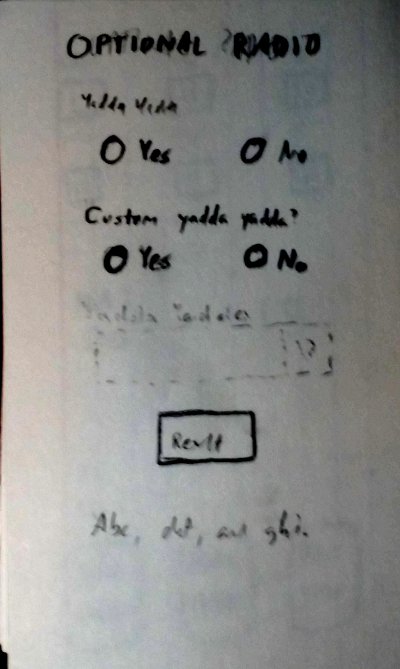 OPTIONAL RADIO
Yadda Yadda
Yes No
Custom yadda yadda?
Yes No
Yadda Yadda
Result
Abc, def, and ghi.